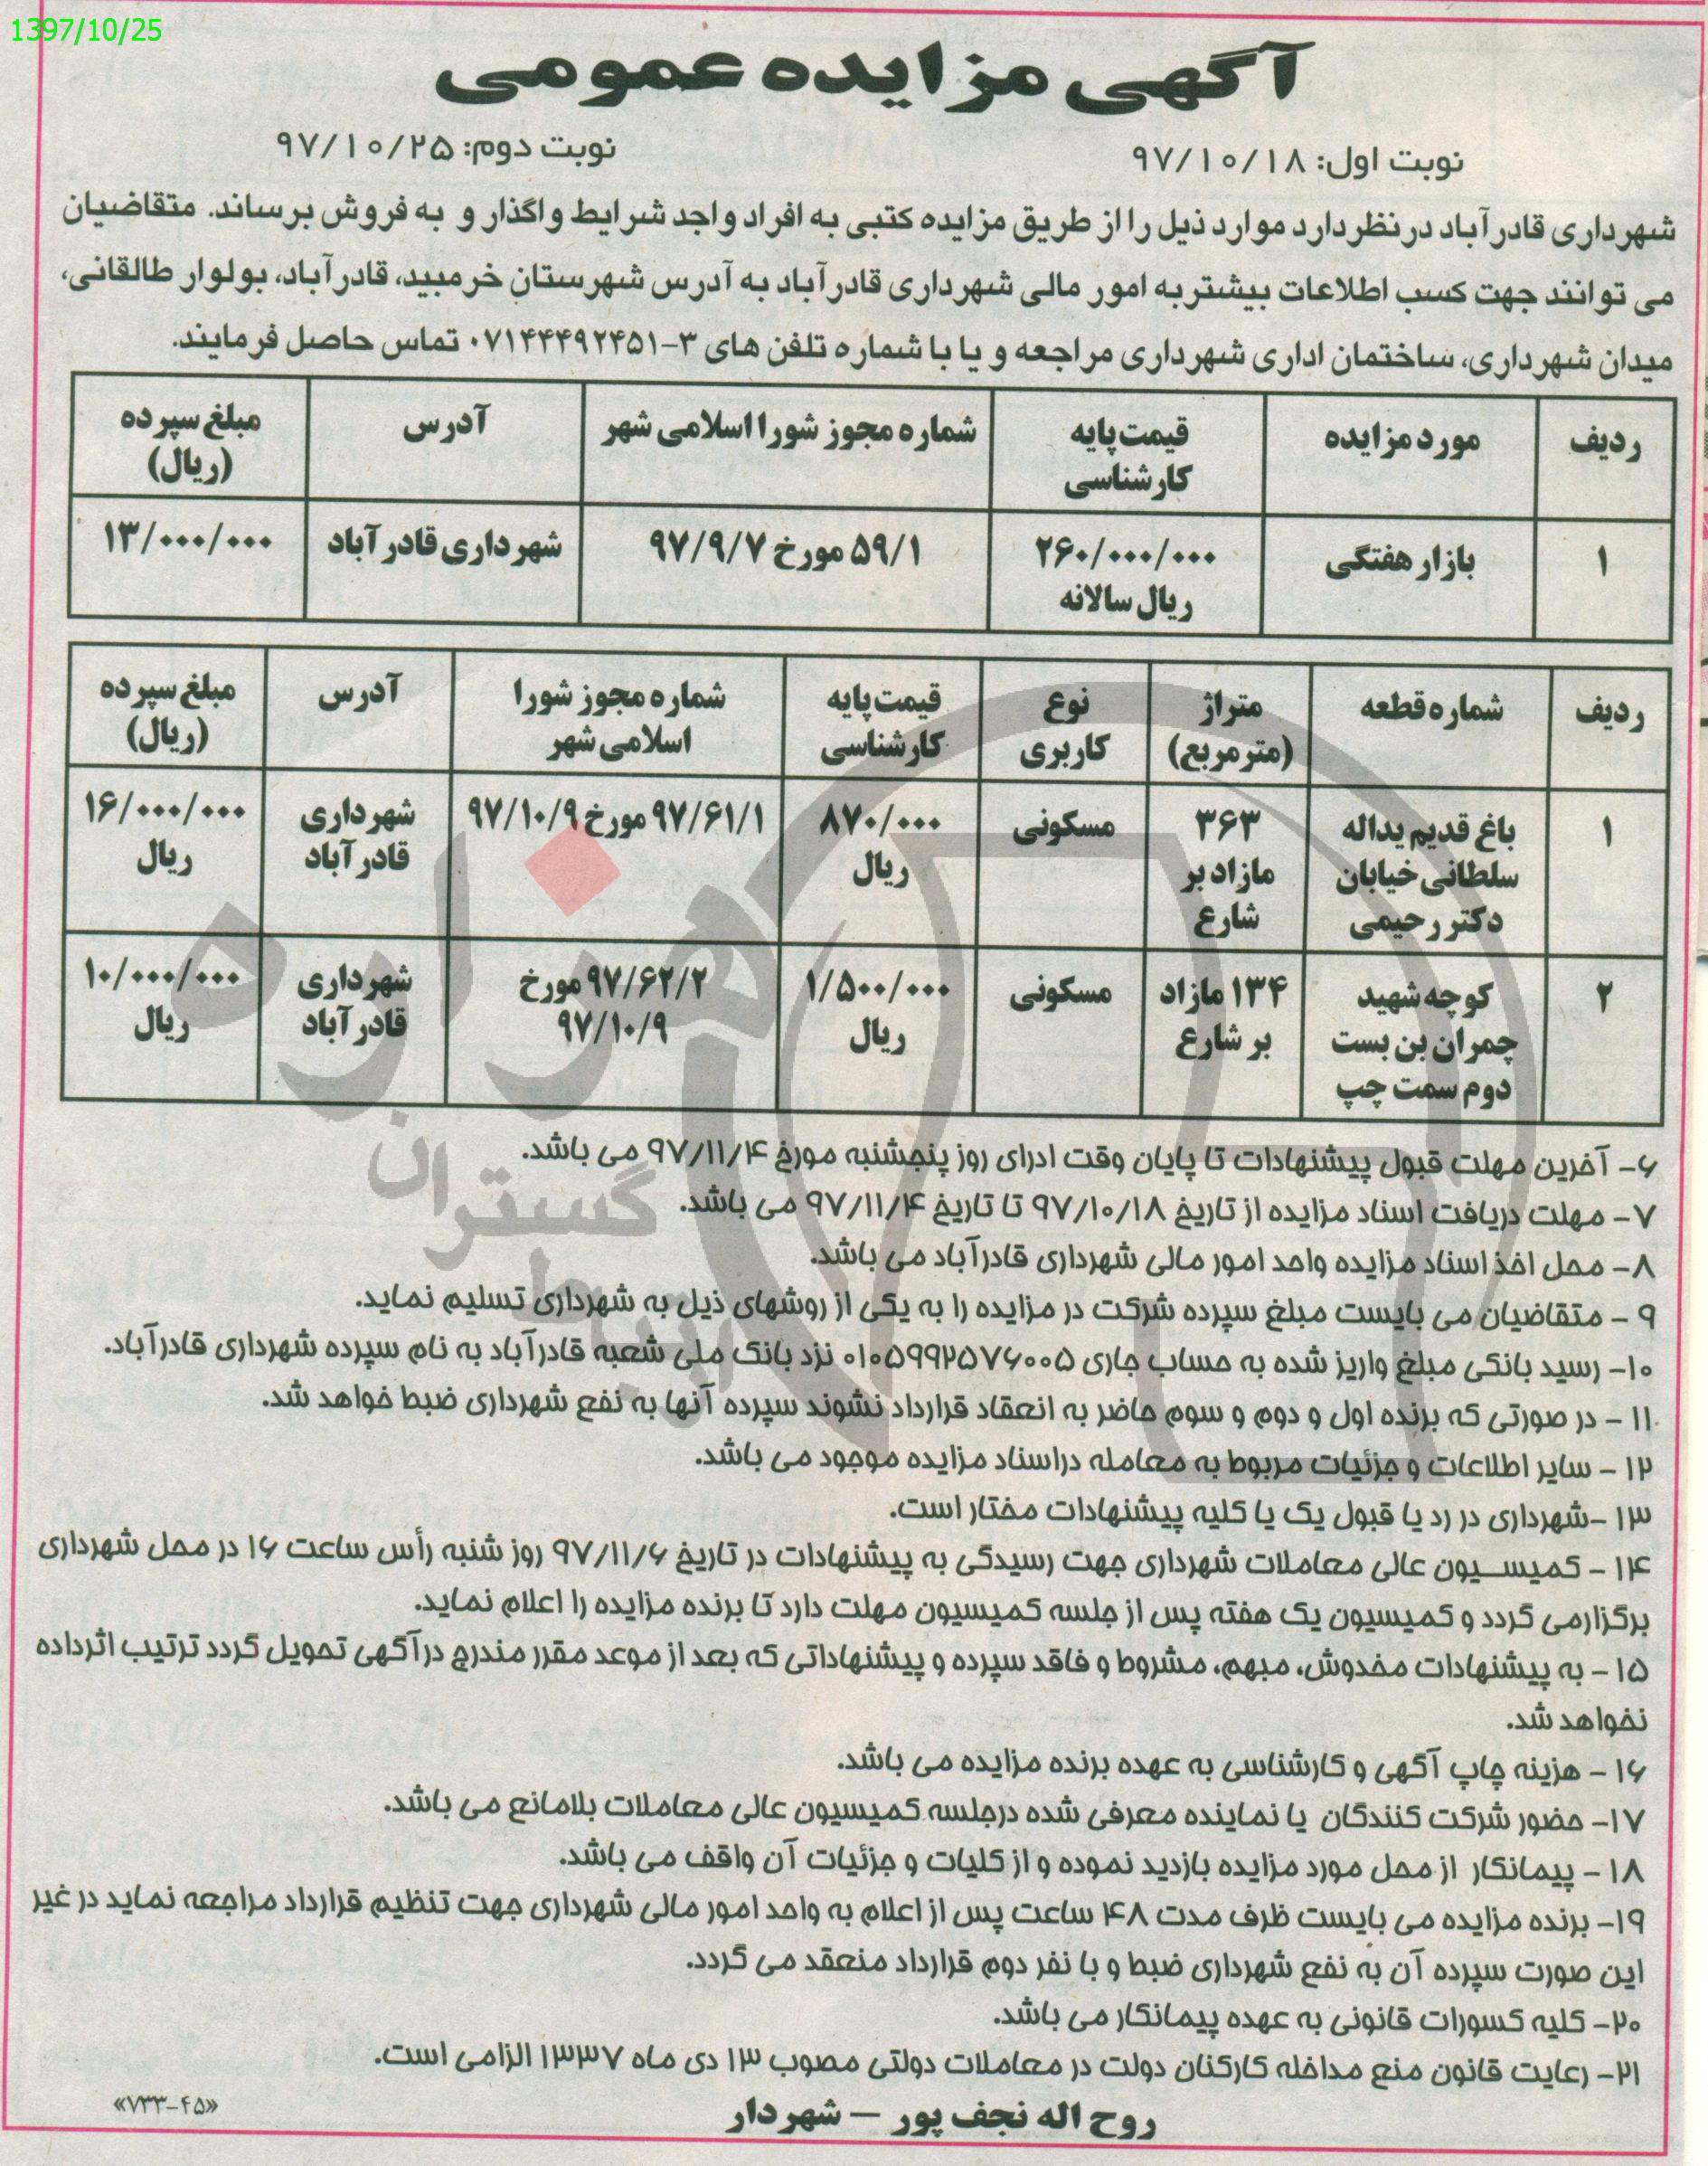 1397/10/25
آگهی مزایده عمومی
نوبت اول: ۹۷/۱۰/۱۸
نوبت دوم: ۹۷/۱۰/۲۵
شهرداری قادرآباد درنظردارد موارد ذیل را از طریق مزایده کتبی به افراد واجد شرایط واگذار و به فروش برساند. متقاضیان
می توانند جهت کسب اطلاعات بیشتربه امور مالی شهرداری قادرآباد به آدرس شهرستان خرمبید، قادرآباد، بولوار طالقانی،
میدان شهرداری، ساختمان اداری شهرداری مراجعه و یا با شماره تلفن های ۳-۰۷۱۴۴۴۹۲۴۵۱ تماس حاصل فرمایند.
ردیف
مورد مزایده
قیمت پایه
کارشناسی
شماره مجوز شورا اسلامی شهر
آدرس
مبلغ سپرده
(ریال)
۱
بازار هفتگی
۲۶۰/۰۰۰/۰۰۰
ریال سالانه
۵۹/۱ مورخ ۹۷/۹/۷
شهرداری قادرآباد
۱۳/۰۰۰/۰۰۰
ردیف
شماره قطعه
متراژ
(مترمربع)
نوع
کاربری
قیمت پایه
کارشناسی
شماره مجوز شورا
اسلامی شهر
آدرس
مبلغ سپرده
(ریال)
۱
باغ قدیم یداله
سلطانی خیابان
دکتر رحیمی
۳۶۳
مازاد بر
شارع
مسکونی
۸۷۰/۰۰۰
ریال
۹۷/۶۱/۱ مورخ ۹۷/۱۰/۹
شهرداری
قادرآباد
۱۶/۰۰۰/۰۰۰
ریال
۲
کوچه شهید
چمران بن بست
دوم سمت چپ
۱۳۴ مازاد
بر شارع
مسکونی
۱/۵۰۰/۰۰۰
ریال
۹۷/۶۲/۲ مورخ
۹۷/۱۰/۹
شهرداری
قادرآباد
۱۰/۰۰۰/۰۰۰
ریال
۶- آخرین مهلت قبول پیشنهادات تا پایان وقت ادرای روز پنجشنبه مورخ ۹۷/۱۱/۴ می باشد.
۷- مهلت دریافت اسناد مزایده از تاریخ ۹۷/۱۰/۱۸ تا تاریخ ۹۷/۱۱/۴ می باشد.
۸- محل اخذ اسناد مزایده واحد امور مالی شهرداری قادرآباد می باشد.
۹ - متقاضیان می بایست مبلغ سپرده شرکت در مزایده را به یکی از روشهای ذیل به شهرداری تسلیم نماید.
۱۰- رسید بانکی مبلغ واریز شده به حساب جاری ۰۱۰۵۹۹۲۵۷۶۰۰۵ نزد بانک ملی شعبه قادرآباد به نام سپرده شهرداری قادرآباد.
۱۱ - در صورتی که برنده اول و دوم و سوم حاضر به انعقاد قرارداد نشوند سپرده آنها به نفع شهرداری ضبط خواهد شد.
۱۲ - سایر اطلاعات و جزئیات مربوط به معامله دراسناد مزایده موجود می باشد.
۱۳ -شهرداری در رد یا قبول یک یا کلیه پیشنهادات مختار است.
۱۴ - کمیسیون عالی معاملات شهرداری جهت رسیدگی به پیشنهادات در تاریخ ۹۷/۱۱/۶ روز شنبه رأس ساعت ۱۶ در محل شهرداری
برگزارمی گردد و کمیسیون یک هفته پس از جلسه کمیسیون مهلت دارد تا برنده مزایده را اعلام نماید.
۱۵ - به پیشنهادات مخدوش، مبهم، مشروط و فاقد سپرده و پیشنهاداتی که بعد از موعد مقرر مندرج درآگهی تحویل گردد ترتیب اثرداده
نخواهد شد.
۱۶ - هزینه چاپ آگهی و کارشناسی به عهده برنده مزایده می باشد.
۱۷- حضور شرکت کنندگان یا نماینده معرفی شده درجلسه کمیسیون عالی معاملات بلامانع می باشد.
۱۸ - پیمانکار از محل مورد مزایده بازدید نموده و از کلیات و جزئیات آن واقف می باشد.
۱۹- برنده مزایده می بایست ظرف مدت ۴۸ ساعت پس از اعلام به واحد امور مالی شهرداری جهت تنظیم قرارداد مراجعه نماید در غیر
این صورت سپرده آن به نفع شهرداری ضبط و با نفر دوم قرارداد منعقد می گردد.
۲۰- کلیه کسورات قانونی به عهده پیمانکار می باشد.
۲۱- رعایت قانون منع مداخله کارکنان دولت در معاملات دولتی مصوب ۱۳ دی ماه ۱۳۳۷ الزامی است.
روح اله نجف پور – شهردار
«۷۳۳-۴۵»
هزاره
گستران